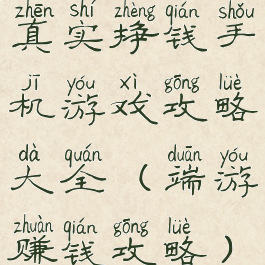 zhēn shí zhèng qián shǒu
真实挣钱手
jī yóu xì gōng lüè
机游戏攻略
dà quán duān yóu
大全（端游
zhuàn qián gōng lüè
赚钱攻略）